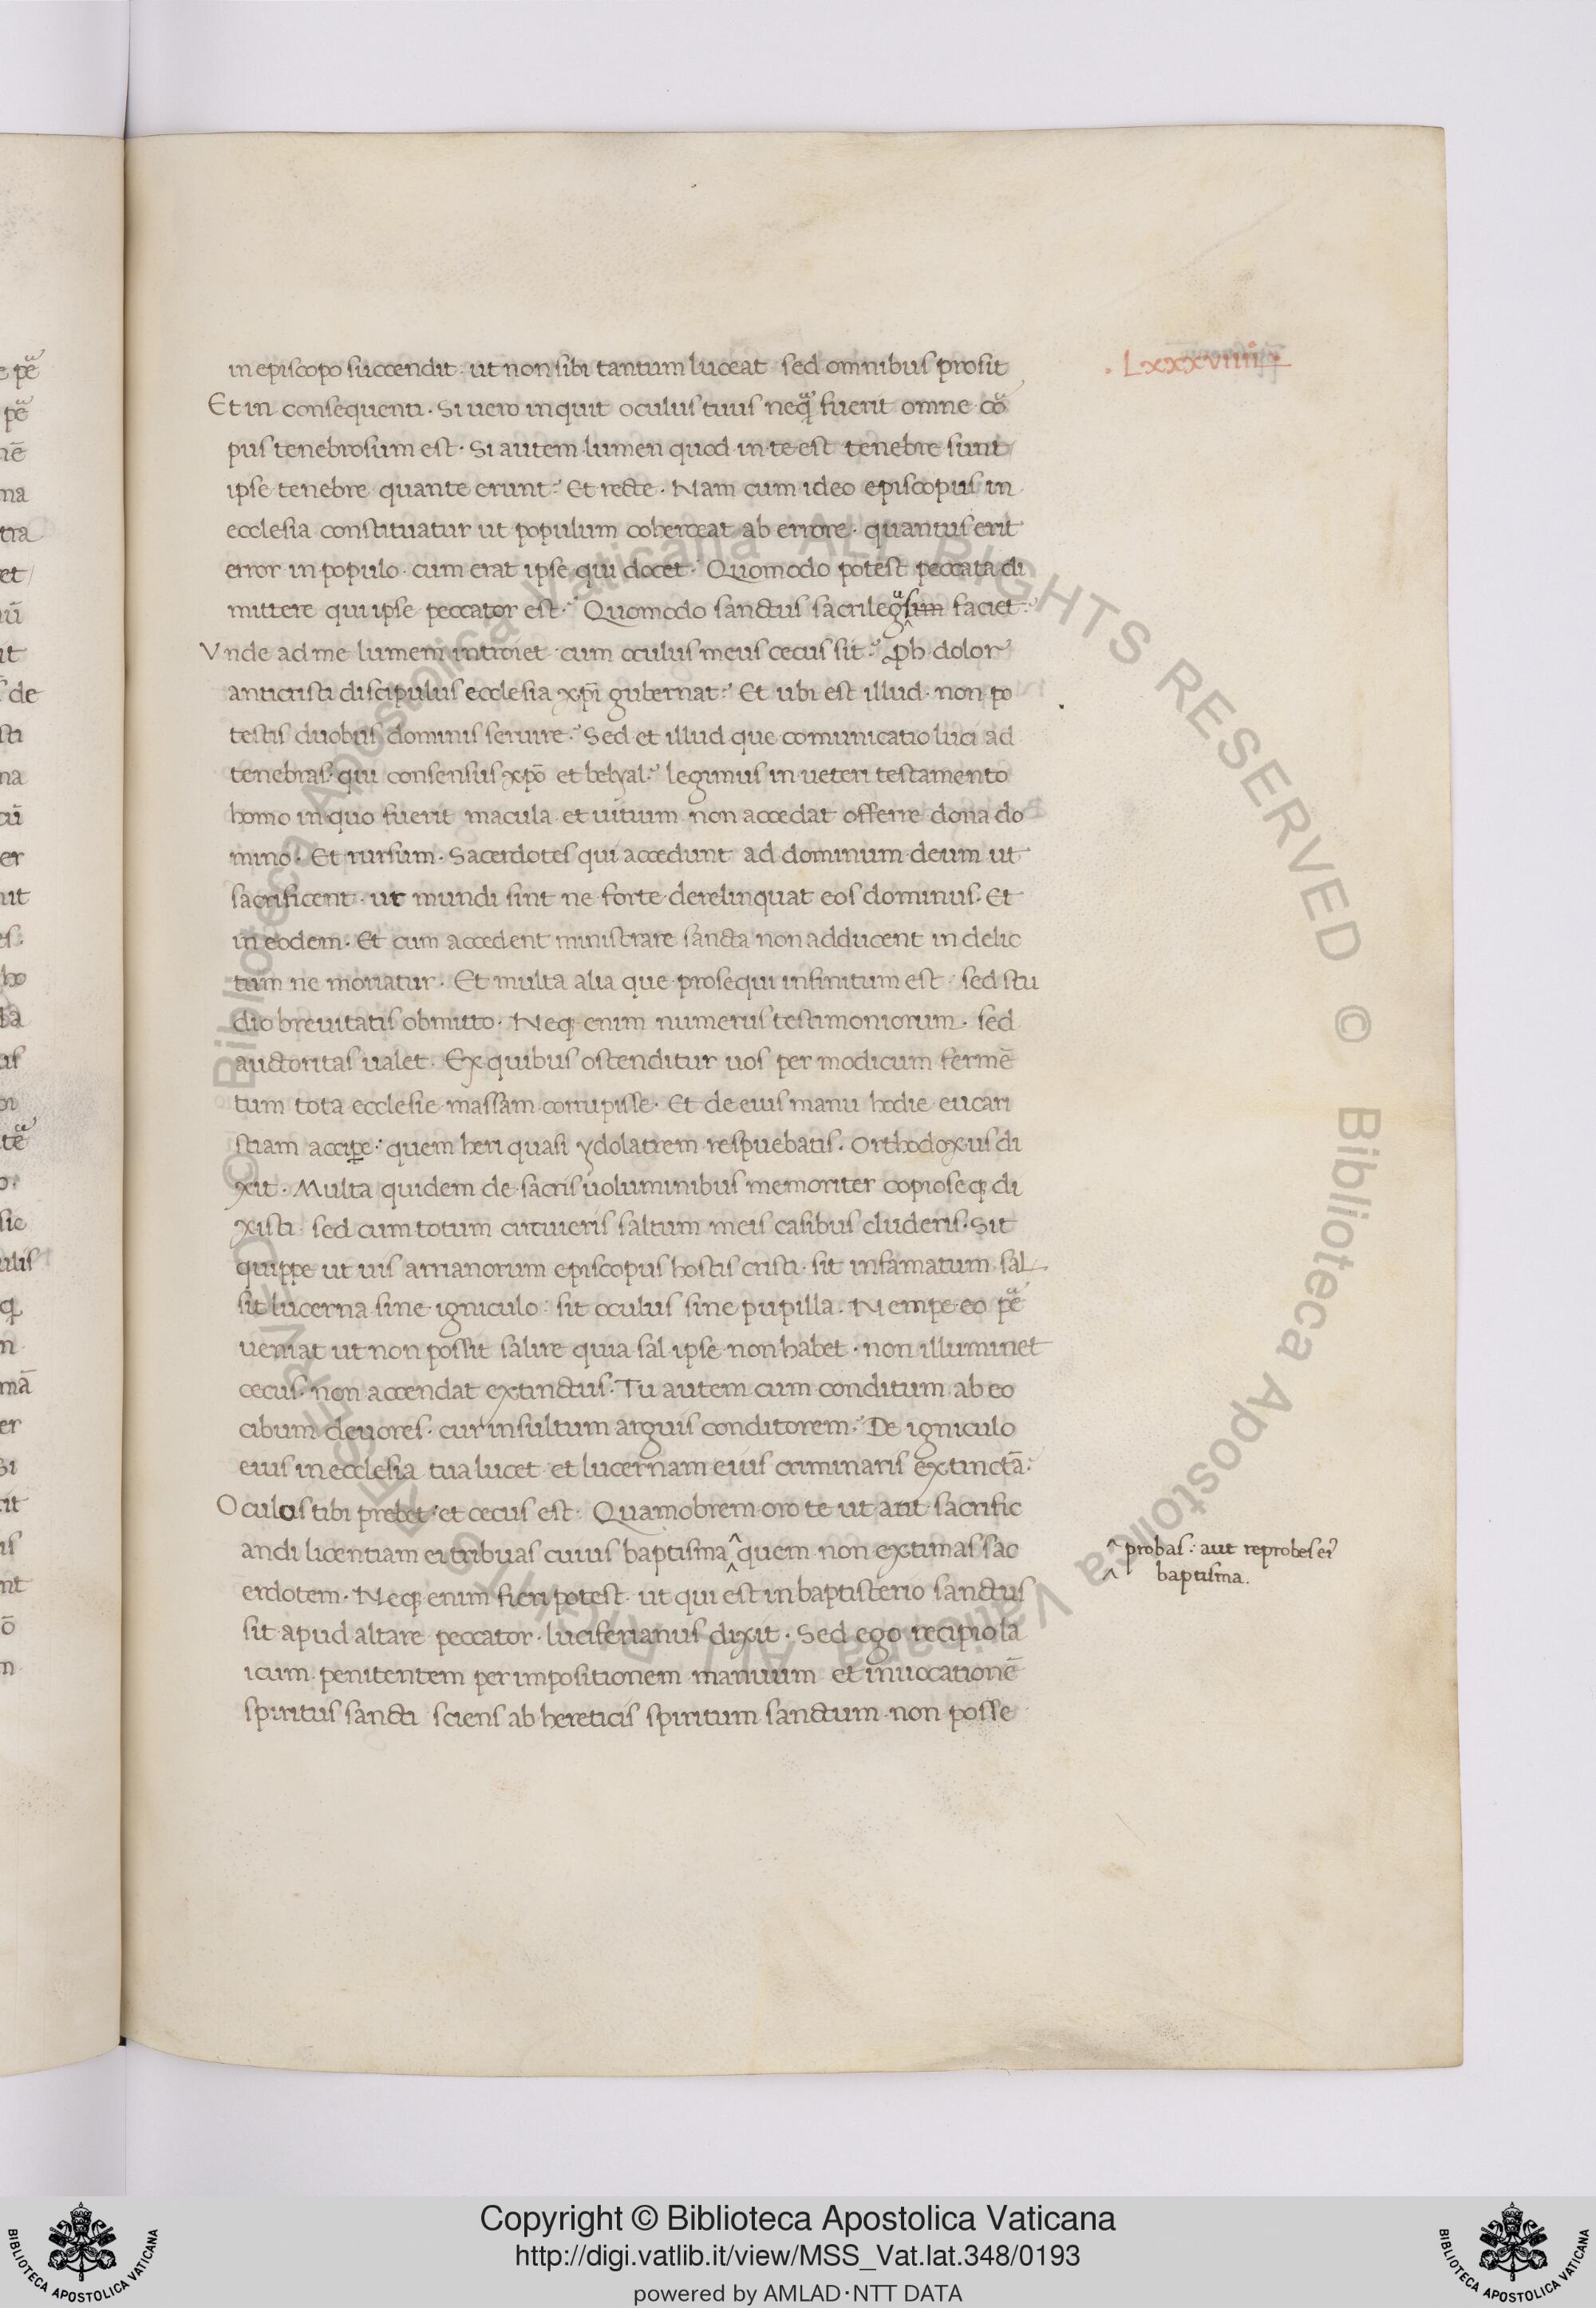 in episcopo succendit · ut non sibi tantum luceat sed omnibus prosit
. Lxxxviiii
Et in consequenti · Si uero inquit oculus tuus neqͣ fuerit omne coͬ
pus tenebrosum est · Si autem lumen quod in te est tenebre sunt
ipse tenebre quante erunt? Et recte · Nam cum ideo episcopus in
ecclesia constituatur ut populum coherceat ab errore · quantus erit
error in populo cum erat ipse qui docet? Quomodo potest peccata di
mittere qui ipse peccator est? Quomodo sanctus sacrileg faciet?
Vnde ad me lumen introiet cum oculus meus cecus sit? Proh dolor
anticristi discipulus ecclesia xpi gubernat? Et ubi est illud · non po
testis duobus dominis seruire? Sed et illud que comunicatio luci ad
tenebras · qui consensus xpō et belyal? legimus in ueteri testamento
homo in quo fuerit macula et uitium non accedat offerre dona do
mino · Et rursum · Sacerdotes qui accedunt ad dominum deum ut
sacrificent · ut mundi sint ne forte derelinquat eos dominus · Et
in eodem · Et cum accedent ministrare sancta non adducent in delic
tum ne moriatur · Et multa alia que prosequi infinitum est · sed stu
dio breuitatis obmitto · Neq; enim numerus testimoniorum · sed
auctoritas ualet · Ex quibus ostenditur uos per modicum fermē
tum tota ecclesie massam corrupisse · Et de eius manu hodie eucari
stiam accipe: quem heri quasi ydolatrem respuebatis · Orthodoxus di
xit · Multa quidem de sacris uoluminibus memoriter copioseq; di
xisti · sed cum totum circuieris saltum meis casibus cluderis · Sit
quippe ut uis arrianorum episcopus hostis cristi · sit infamatum sal
sit lucerna sine igniculo: sit oculus sine pupilla · Nempe eo pͣe
ueniat ut non possit salire quia sal ipse non habet · non illuminet
cecus · non accendat extinctus · Tu autem cum conditum ab eo
cibum deuores · cur insultum arguis conditorem? De igniculo
eius in ecclesia tua lucet et lucernam eius criminaris extinctā?
Oculos tibi prebet et cecus est · Quamobrem oro te ut aut sacrific
andi licentiam ei tribuas cuius baptisma ^ quem non extimas sac
^ probas: aut reprobes ei
^ baptisma.
erdotem · Neq; enim fieri potest ut qui est in baptisterio sanctus
sit apud altare peccator · luciferianus dixit · Sed ego recipio la
icum penitentem per impositionem manuum et inuocationē
spiritus sancti sciens ab hereticis spiritum sanctum non posse
Copyright © Biblioteca Apostolica Vaticana
http://digi.vatlib.it/view/MSS_Vat.lat.348/0193
powered by AMLAD·NTT DATA